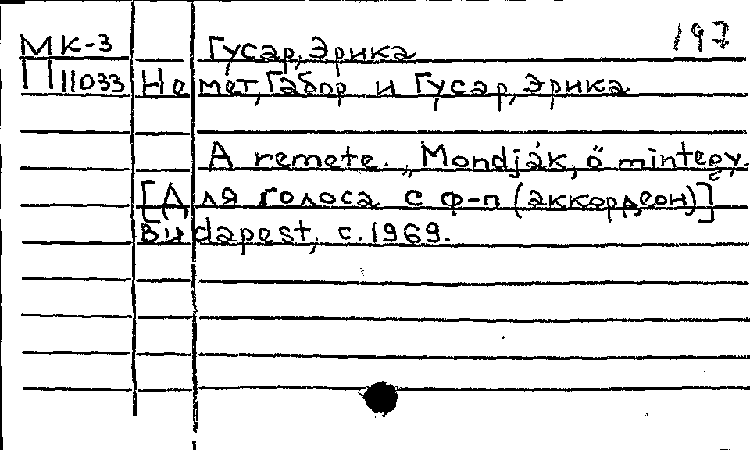 197
МК-3 Гусар, Эрика
П11033 Немет, Габор и Гусар, Эрика
A remete. „Mondják, ő mintegy
[Для голоса с ф-п (аккордеон)]
Budapest, c.1969.